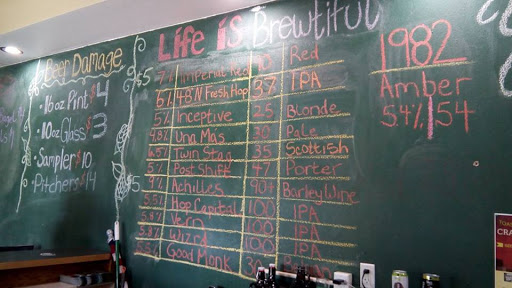 Life is Brewtiful
Beer Damage
16oz Pint $4
10oz Glass $3
Sampler $10
Pitchers $14
$5
$5
7% Imperial Red 90 Red
6% 48°N Fresh Hop 37 IPA
5% Inceptive 25 Blonde
4.8% Una Mas 30 Pale
6.5% Twin Stag 35 Scottish
Post Shift 47 Porter
9% Achilles 90+ BarleyWine
5.8% Hop Capital 100 IPA
5.8% Vern 100 IPA
5.8% Wizrd 100 IPA
5.5% Good Monk 30
1982
Amber
5.4% 54
CRA